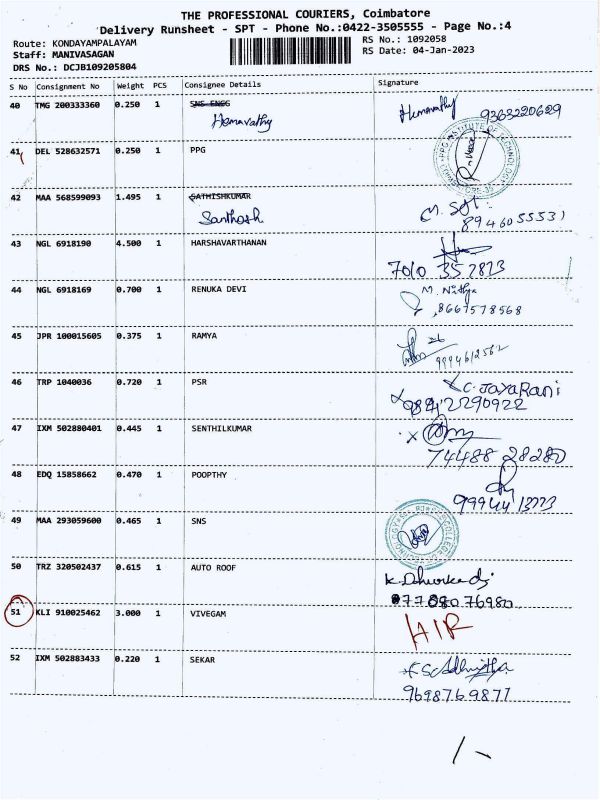 THE PROFESSIONAL COURIERS, Coimbatore
Delivery Runsheet - SPT - Phone No.:0422-3505555 - Page No.:4
Route: KONDAYAMPALAYAM
RS No.: 1092058
Staff: MANIVASAGAN
RS Date: 04-Jan-2023
DRS No.: DCJB109205804
S No Consignment No Weight PCS Consignee Details Signature
40 TMG 200333360 0.250 1 SNS ENGG Hemavathy 9363220629
Hemavathy
41 DEL 528632571 0.250 1 PPG
PPG INSTITUTE OF TECHNOLOGY
42 MAA 568599093 1.495 1 SATHISHKUMAR
Santhosh 8946055531
43 NGL 6918190 4.500 1 HARSHAVARTHANAN
7010 352823
44 NGL 6918169 0.700 1 RENUKA DEVI M. Nithya
8667578568
45 JPR 100015605 0.375 1 RAMYA
9994612562
46 TRP 1040036 0.720 1 PSR C. JayaRani
9842290922
47 IXM 502880401 0.445 1 SENTHILKUMAR
74488 28280
48 EDQ 15858662 0.470 1 POOPTHY
99944 13773
49 MAA 293059600 0.465 1 SNS
50 TRZ 320502437 0.615 1 AUTO ROOF
77080 76980
51 KLI 910025462 3.000 1 VIVEGAM
52 IXM 502883433 0.220 1 SEKAR
9698769877